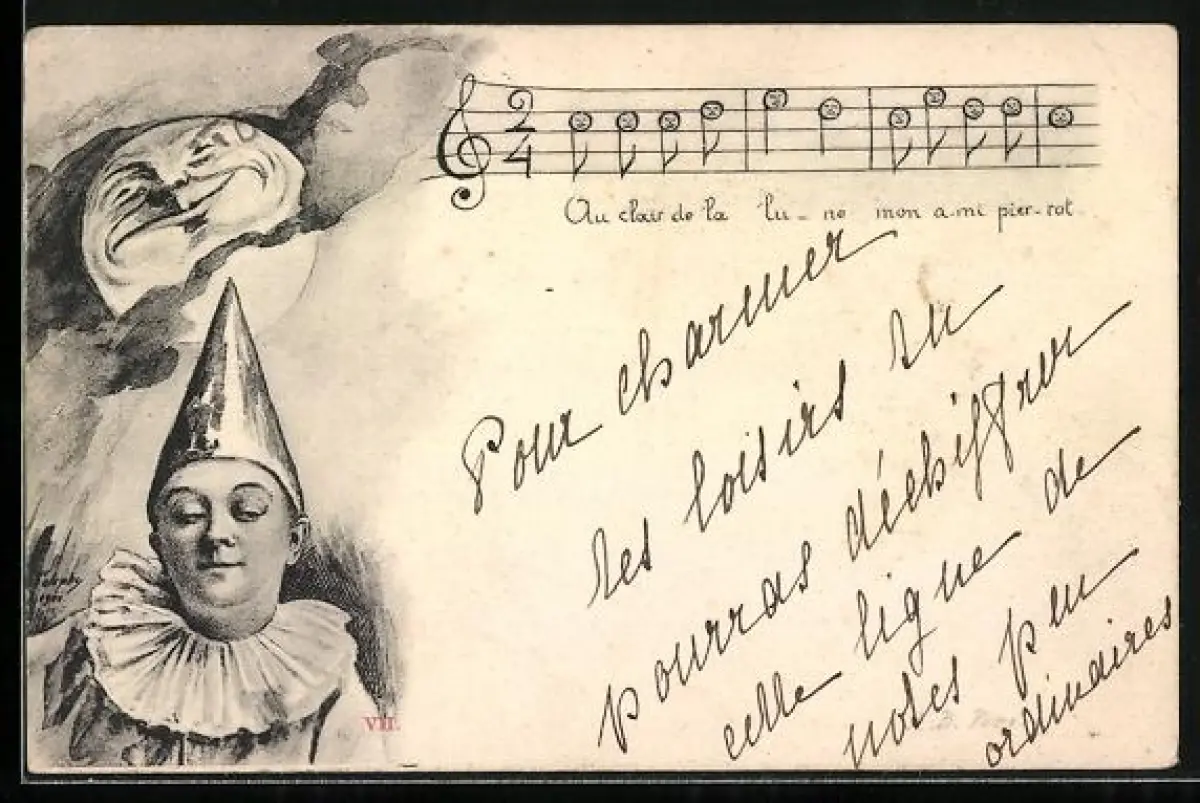 2
4
Au clair de la lu - ne mon a-mi pier-rot
Pour charmer
tes loisirs tu
pourras déchiffrer
cette ligne de
notes peu
ordinaires
1901
VII.